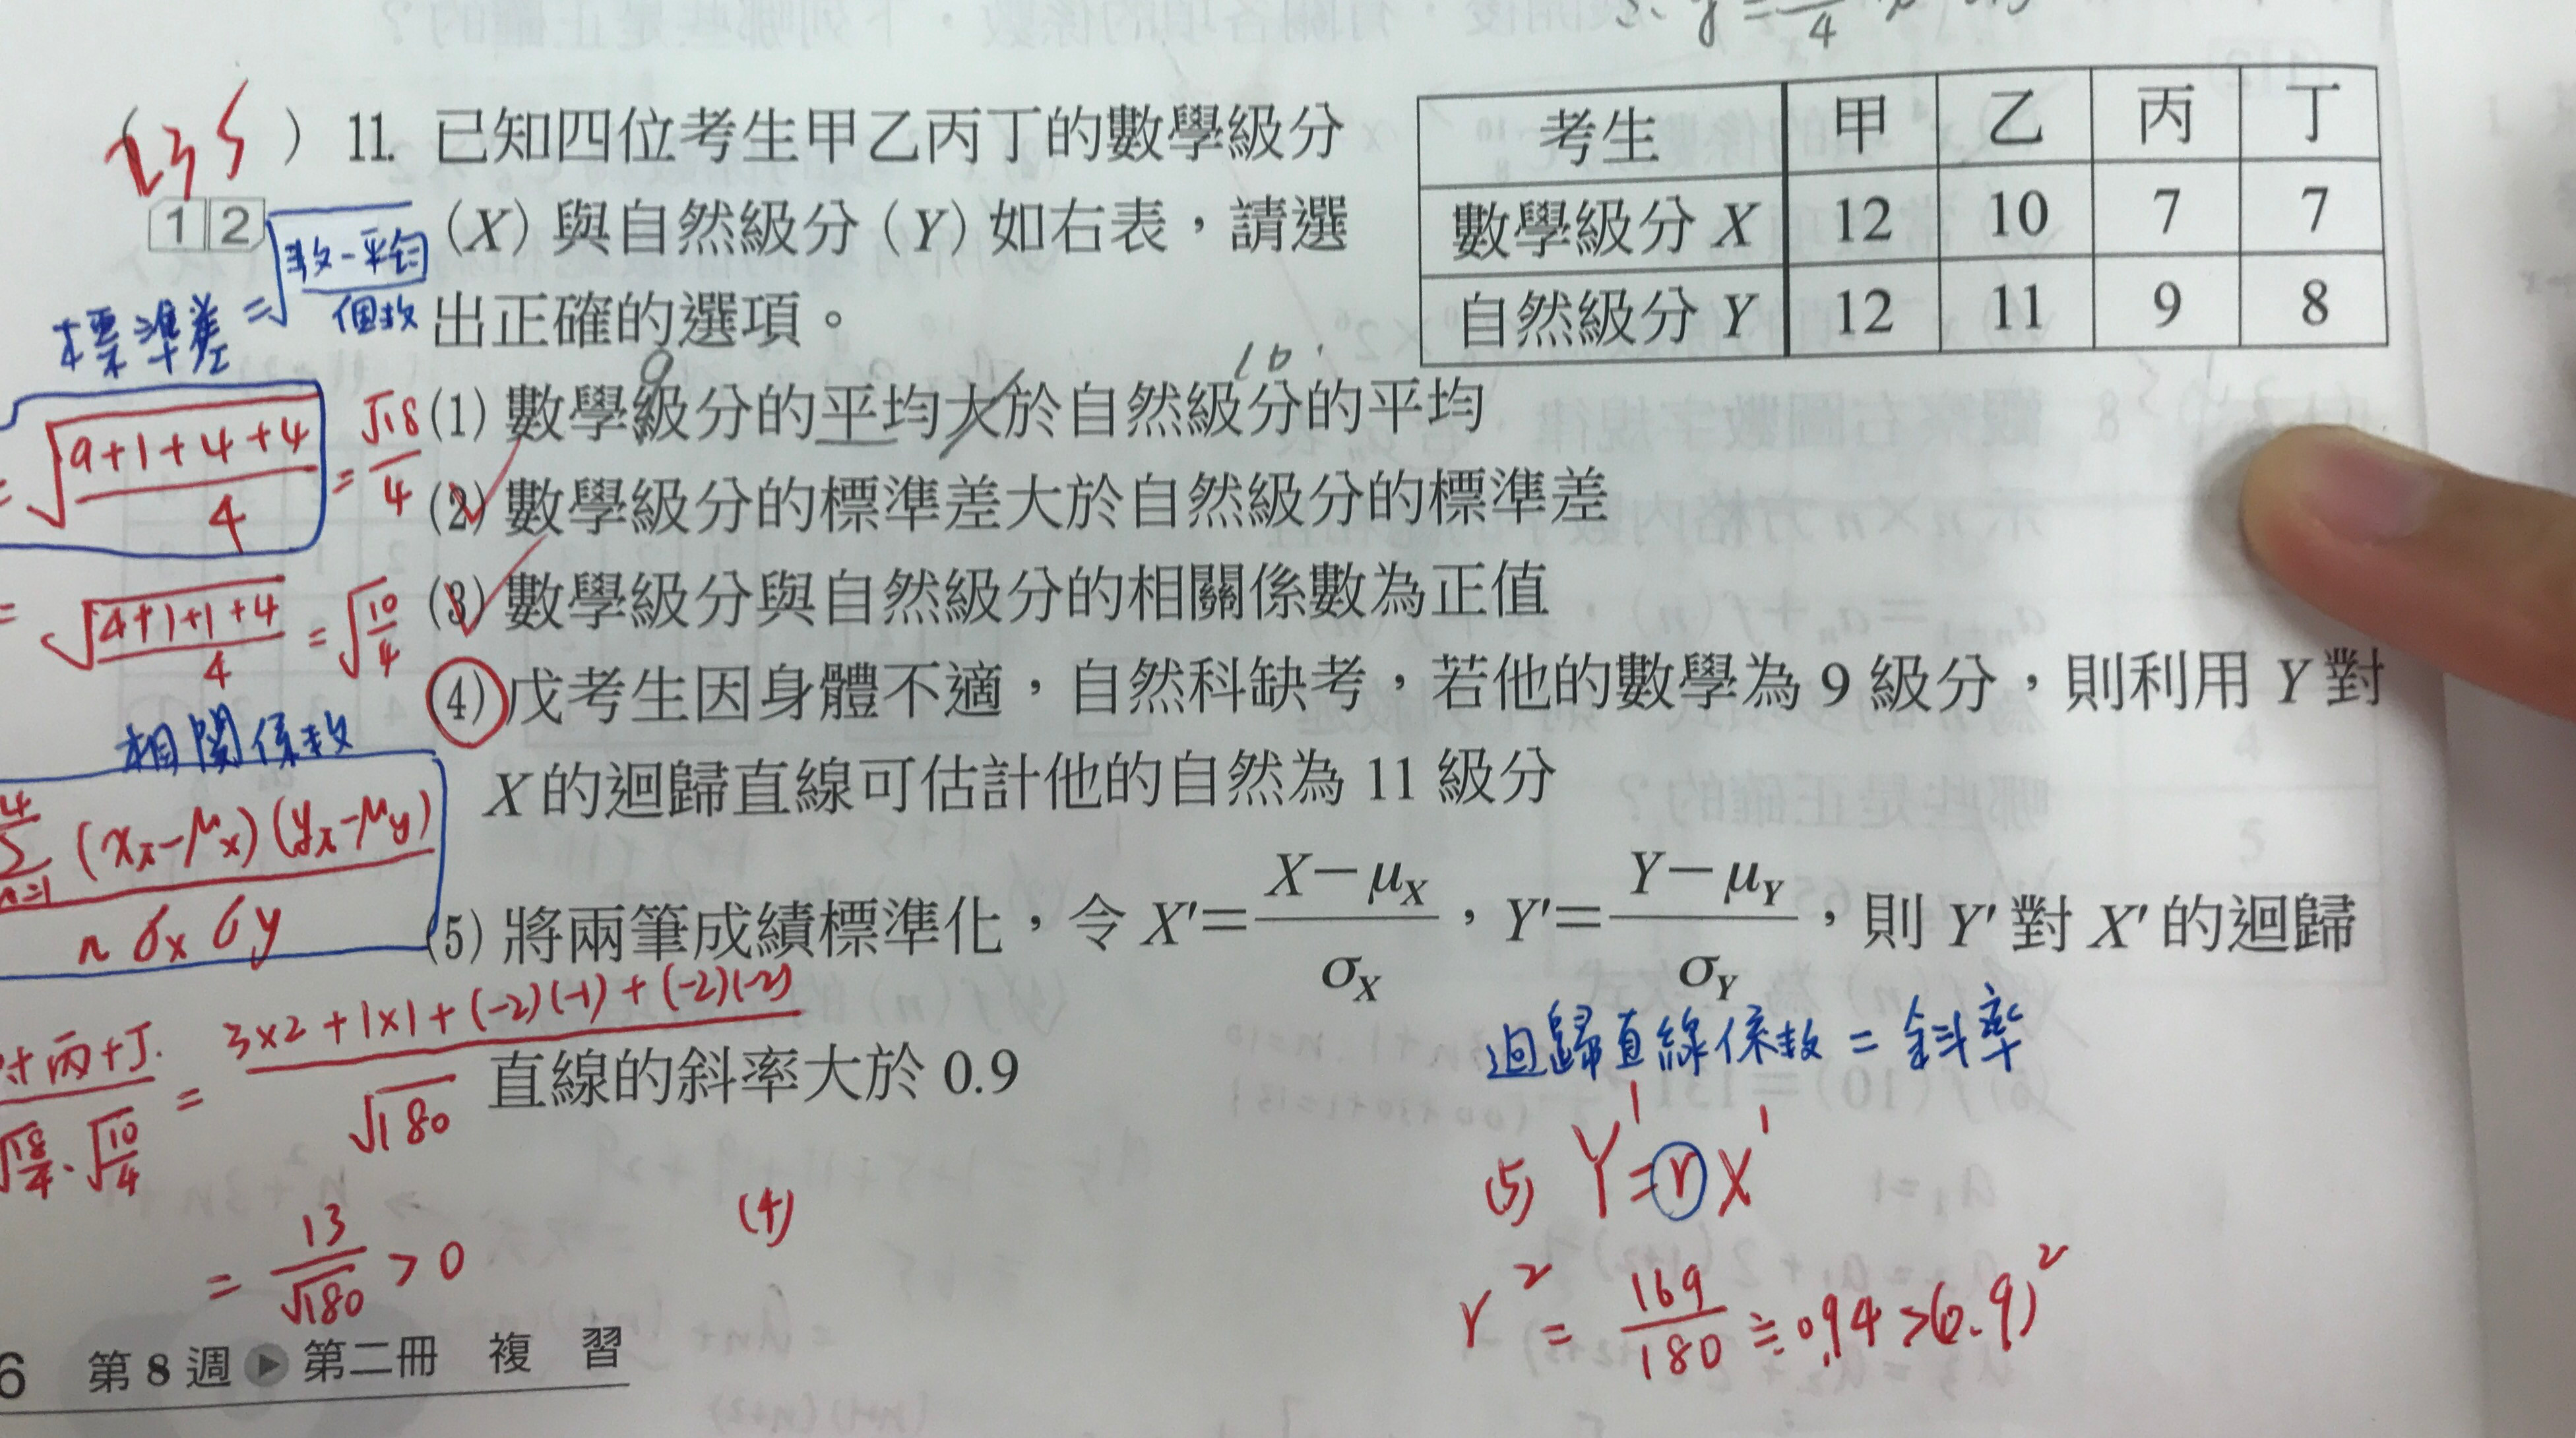 (235) 11. 已知四位考生甲乙丙丁的數學級分
1 2
(X)與自然級分(Y)如右表,請選
出正確的選項。
考生 甲 乙 丙 丁
數學級分 X 12 10 7 7
自然級分 Y 12 11 9 8
標準差 = √(數-平均)/個數
9 10
(1) 數學級分的平均大於自然級分的平均
= √(9+1+4+4)/4 = √18/4
(2) 數學級分的標準差大於自然級分的標準差
= √(4+1+1+4)/4 = √(10/4)
(3) 數學級分與自然級分的相關係數為正值
(4) 戊考生因身體不適,自然科缺考,若他的數學為 9 級分,則利用 Y 對
X 的迴歸直線可估計他的自然為 11 級分
相關係數
(xᵢ-μx)(yᵢ-μy)
n σx σy
(5) 將兩筆成績標準化,令 X′=(X-μX)/σX,Y′=(Y-μY)/σY,則 Y′ 對 X′ 的迴歸
直線的斜率大於 0.9
丙+丁
√(18/4)·√(10/4)
= (3×2+1×1+(-2)(-1)+(-2)(-2))/√180
= 13/√180 > 0
(4)
迴歸直線係數 = 斜率
(5) Y′=rX′
r² = 169/180 ≒ 0.94 >(0.9)²
6 第 8 週 第二冊 複 習